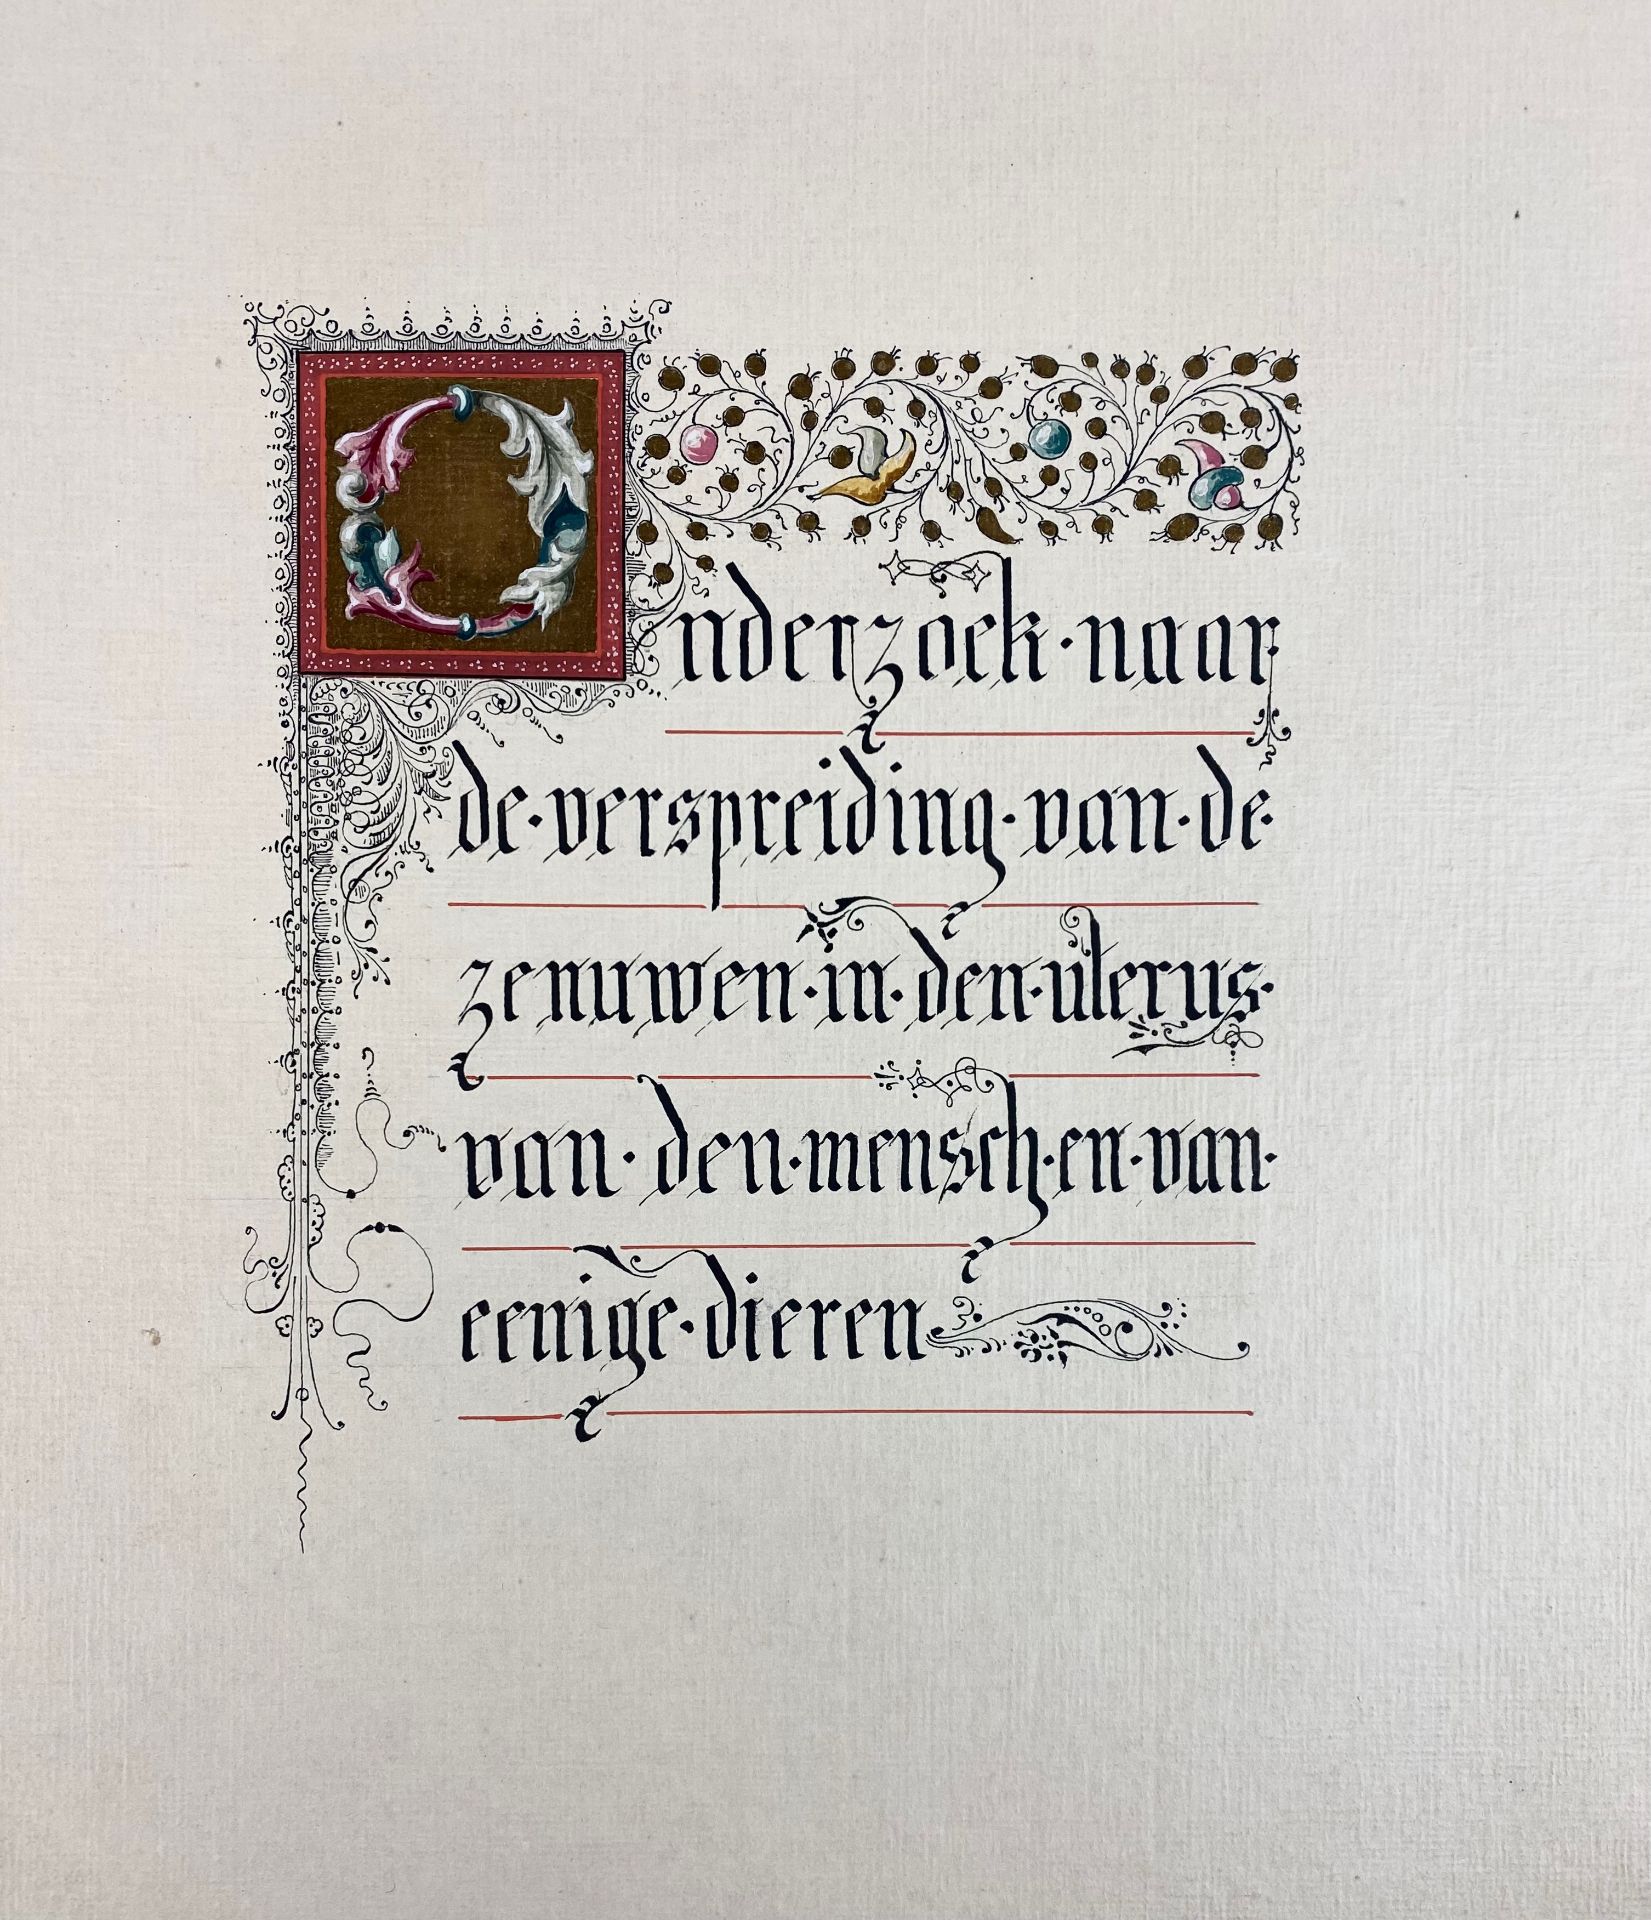 Onderzoek·naar
de·verspreiding·van·de·
zenuwen·in·den·uterus·
van·den·mensch·en·van·
eenige·dieren